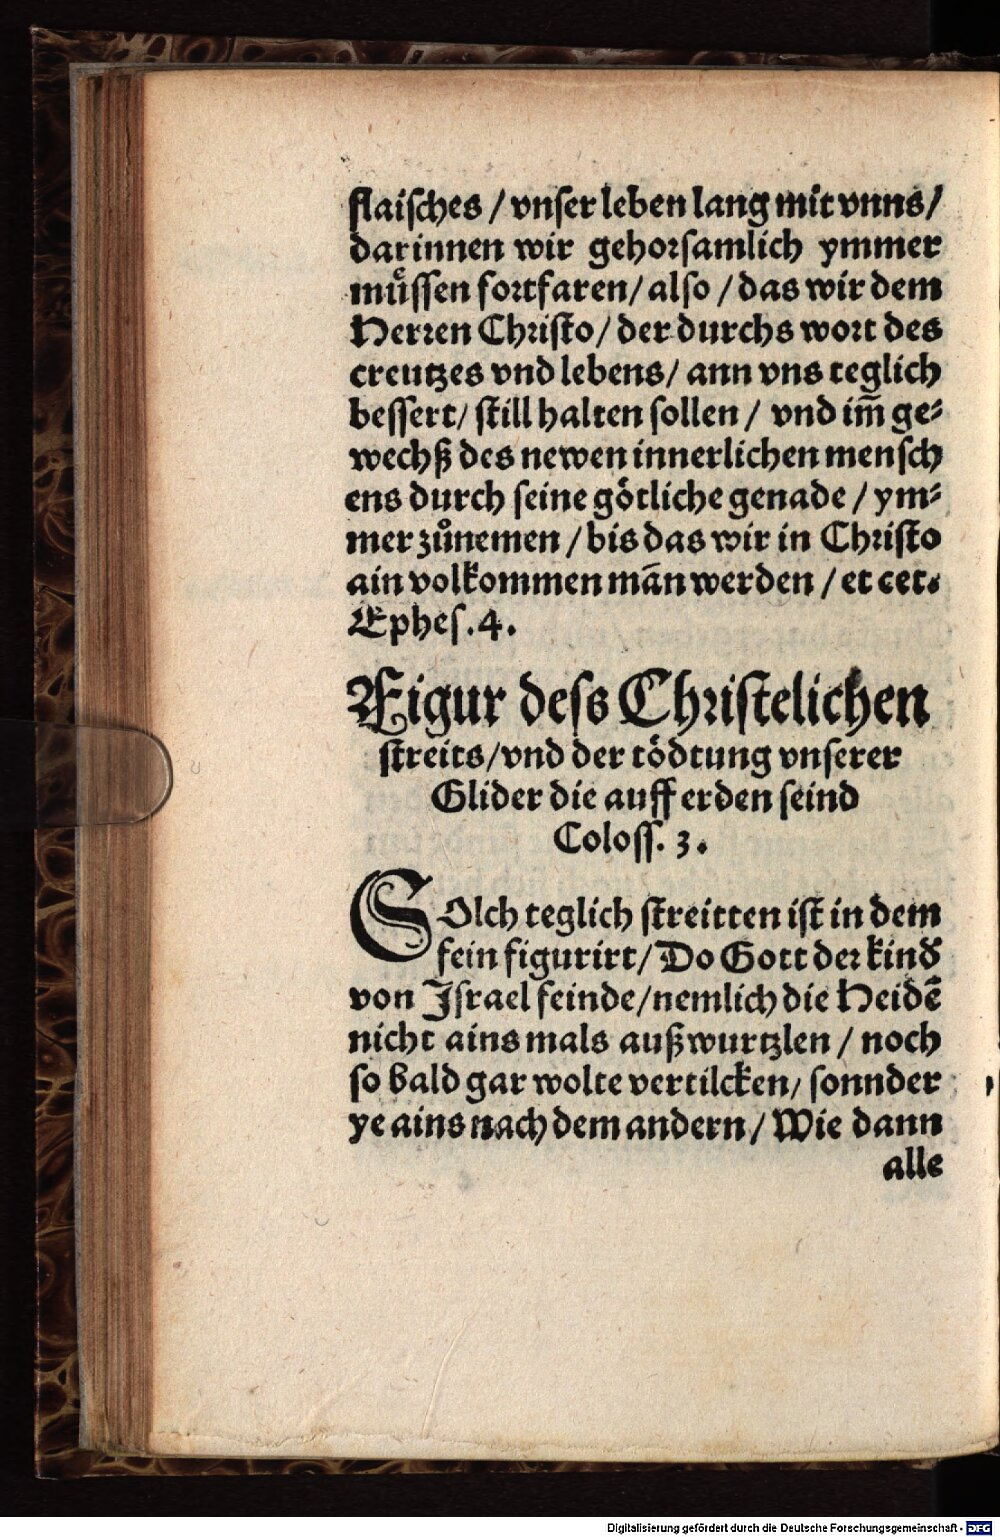 flaisches / vnser leben lang mit vnns /
darinnen wir gehorsamlich ymmer
muͤssen fortfaren / also / das wir dem
Herren Christo / der durchs wort des
creutzes vnd lebens / ann vns teglich
bessert / still halten sollen / vnd im̃ ge⸗
wechß des newen innerlichen mensch
ens durch seine goͤtliche genade / ym⸗
mer zuͦnemen / bis das wir in Christo
ain volkommen mãn werden / et cet.
Ephes. 4.
Figur dess Christelichen
streits / vnd der toͤdtung vnserer
Glider die auff erden seind
Coloss. 3.
SOlch teglich streitten ist in dem
fein figurirt / Do Gott der kinð
von Israel feinde / nemlich die Heidẽ
nicht ains mals außwurtzlen / noch
so bald gar wolte vertilcken / sonnder
ye ains nach dem andern / Wie dann
alle
Digitalisierung gefördert durch die Deutsche Forschungsgemeinschaft - DFG